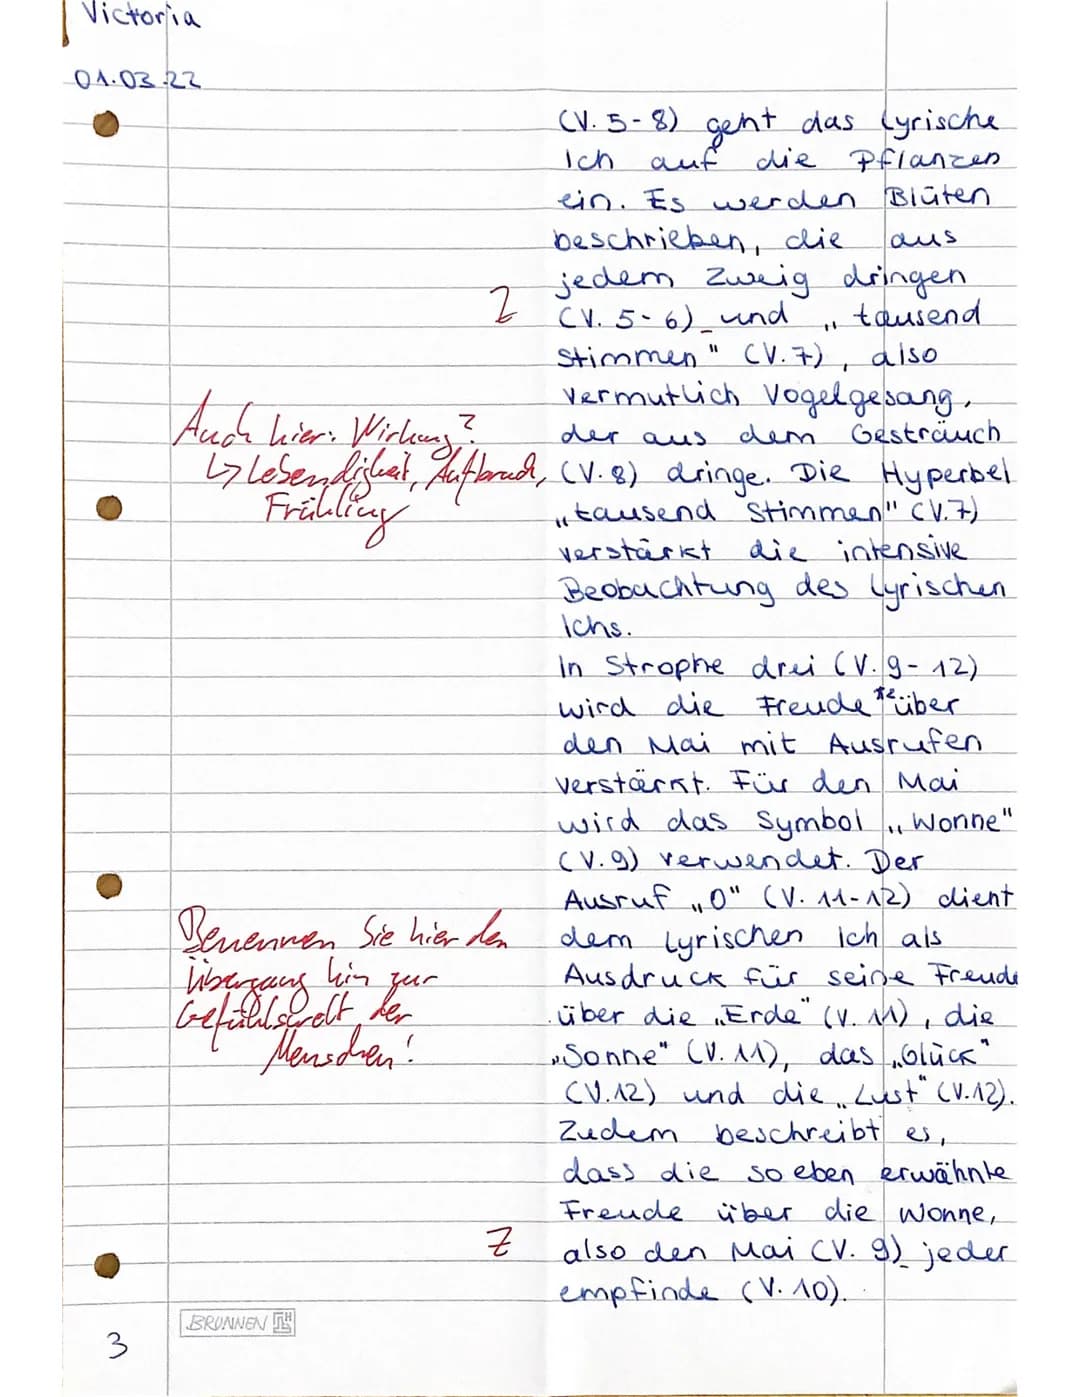 Victoria
01.03.22
(V. 5-8) geht das lyrische
Ich auf die Pflanzen
ein. Es werden Blüten
beschrieben, die aus
jedem Zweig dringen
Z
(V. 5-6) und „tausend
Stimmen" (V. 7), also
vermutlich Vogelgesang,
Auch hier: Wirkung?
der aus dem Gesträuch
↳ Lebendigkeit, Aufbruch,
Frühling
(V. 8) dringe. Die Hyperbel
„tausend Stimmen" (V. 7)
verstärkt die intensive
Beobachtung des lyrischen
Ichs.
In Strophe drei (V. 9-12)
wird die Freude *2 über
den Mai mit Ausrufen
verstärkt. Für den Mai
wird das Symbol „Wonne"
(V. 9) verwendet. Der
Ausruf „O" (V. 11-12) dient
Benennen Sie hier den
Übergang hin zur
Gefühlswelt der
Menschen!
dem Lyrischen Ich als
Ausdruck für seine Freude
über die „Erde" (V. 11), die
„Sonne" (V. 11), das „Glück"
(V. 12) und die „Lust" (V. 12).
Zudem beschreibt es,
dass die so eben erwähnte
Freude über die Wonne,
Z
also den Mai (V. 9) jeder
empfinde (V. 10).
BRUNNEN
3